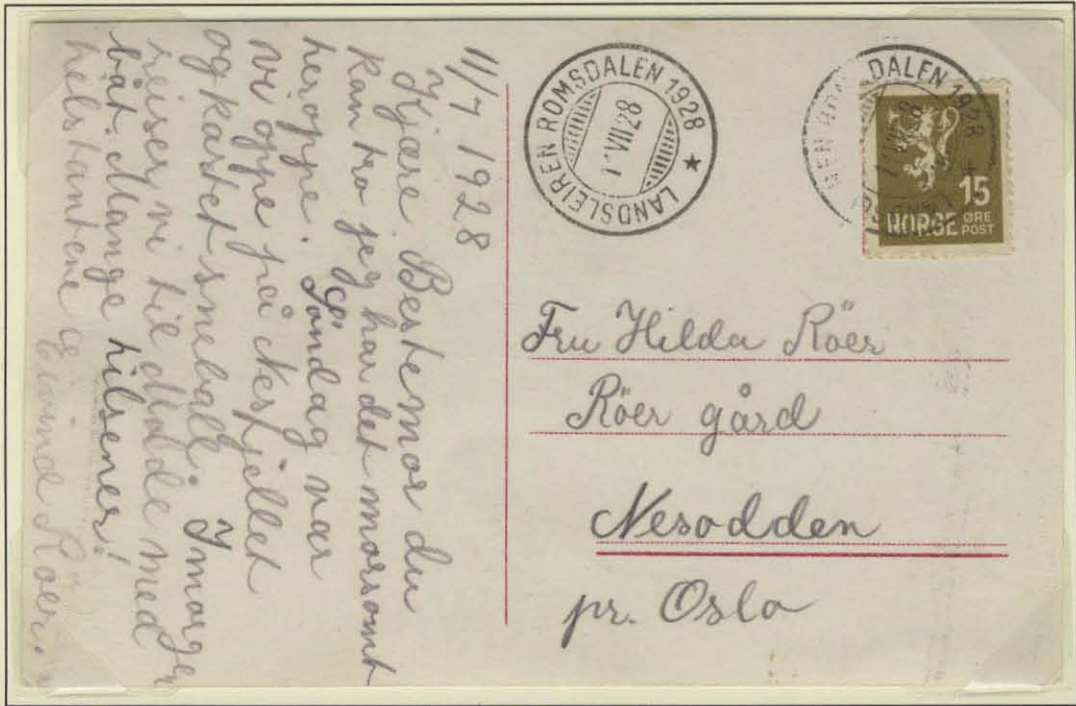 11/7 1928
Kjære Bestemor du
kan tro jeg har det morsomt
heroppe. Söndag var
vi oppe på Nesfjellet
og kastet sneball. Imorgen
reiser vi til Molde med
båt. Mange hilsener!
Eivind Röer.
LANDSLEIREN ROMSDALEN 1928
11 VII 28
DALEN 1928
15
NORGE ØRE
POST
Fru Hilda Röer
Röer gård
Nesodden
pr. Oslo